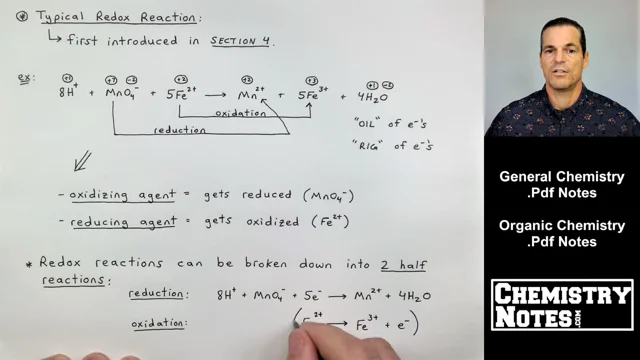 * Typical Redox Reaction:
↳ first introduced in SECTION 4
ex: 8H⁺ + MnO₄⁻ + 5Fe²⁺ → Mn²⁺ + 5Fe³⁺ + 4H₂O
+1 +7 -2 +2 +2 +3 +1 -2
oxidation
reduction
"OIL" of e⁻'s
"RIG" of e⁻'s
- oxidizing agent = gets reduced (MnO₄⁻)
- reducing agent = gets oxidized (Fe²⁺)
* Redox reactions can be broken down into 2 half
reactions:
reduction: 8H⁺ + MnO₄⁻ + 5e⁻ → Mn²⁺ + 4H₂O
oxidation: ( ²⁺ → Fe³⁺ + e⁻ )
General Chemistry
.Pdf Notes
Organic Chemistry
.Pdf Notes
CHEMISTRY
NOTES.COM